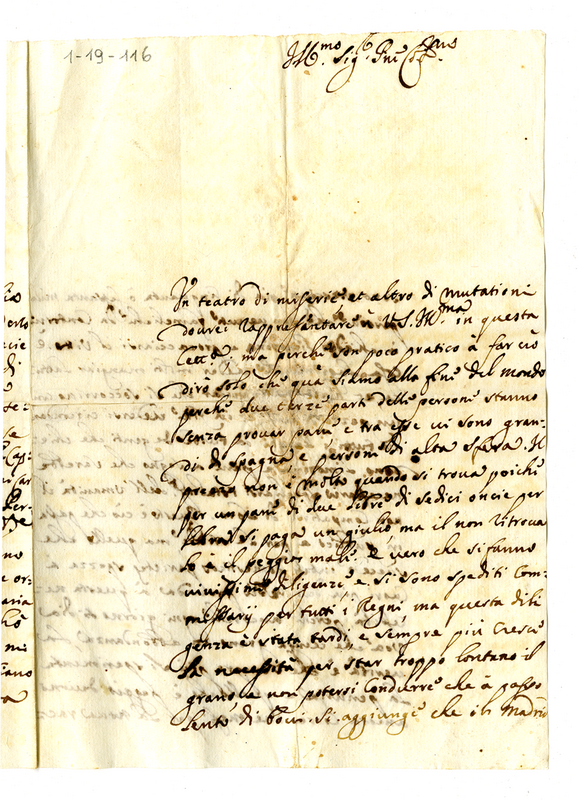 1-19-116
Ill.mo Sig.r P.ne Col.mo
Un teatro di miserie et altro di mutationi
dovrei rappresentare à V.S. Ill.ma in questa
lett.a, ma perche son poco pratico à far ciò
dirò solo che quà siamo alla fine del mondo
perche due terze parti delle persone stanno
senza provar pane e tra esse vi sono gran=
di di spagna e persone di alta sfera. Il
prezzo non è molto quando si trova poiche
per un pane di due libre di sedici oncie per
libra si paga un giulio ma il non ritrovar
lo è il peggior male, è vero che si fanno
vivissime diligenze, e si sono spediti Com=
missarij per tutti i Regni, ma questa dili
genza è stata tardi, e sempre più cresce
la necessità per star troppo lontano il
grano e non potersi condurre che à passo
lento di bovi. si aggiunge che in Madrid